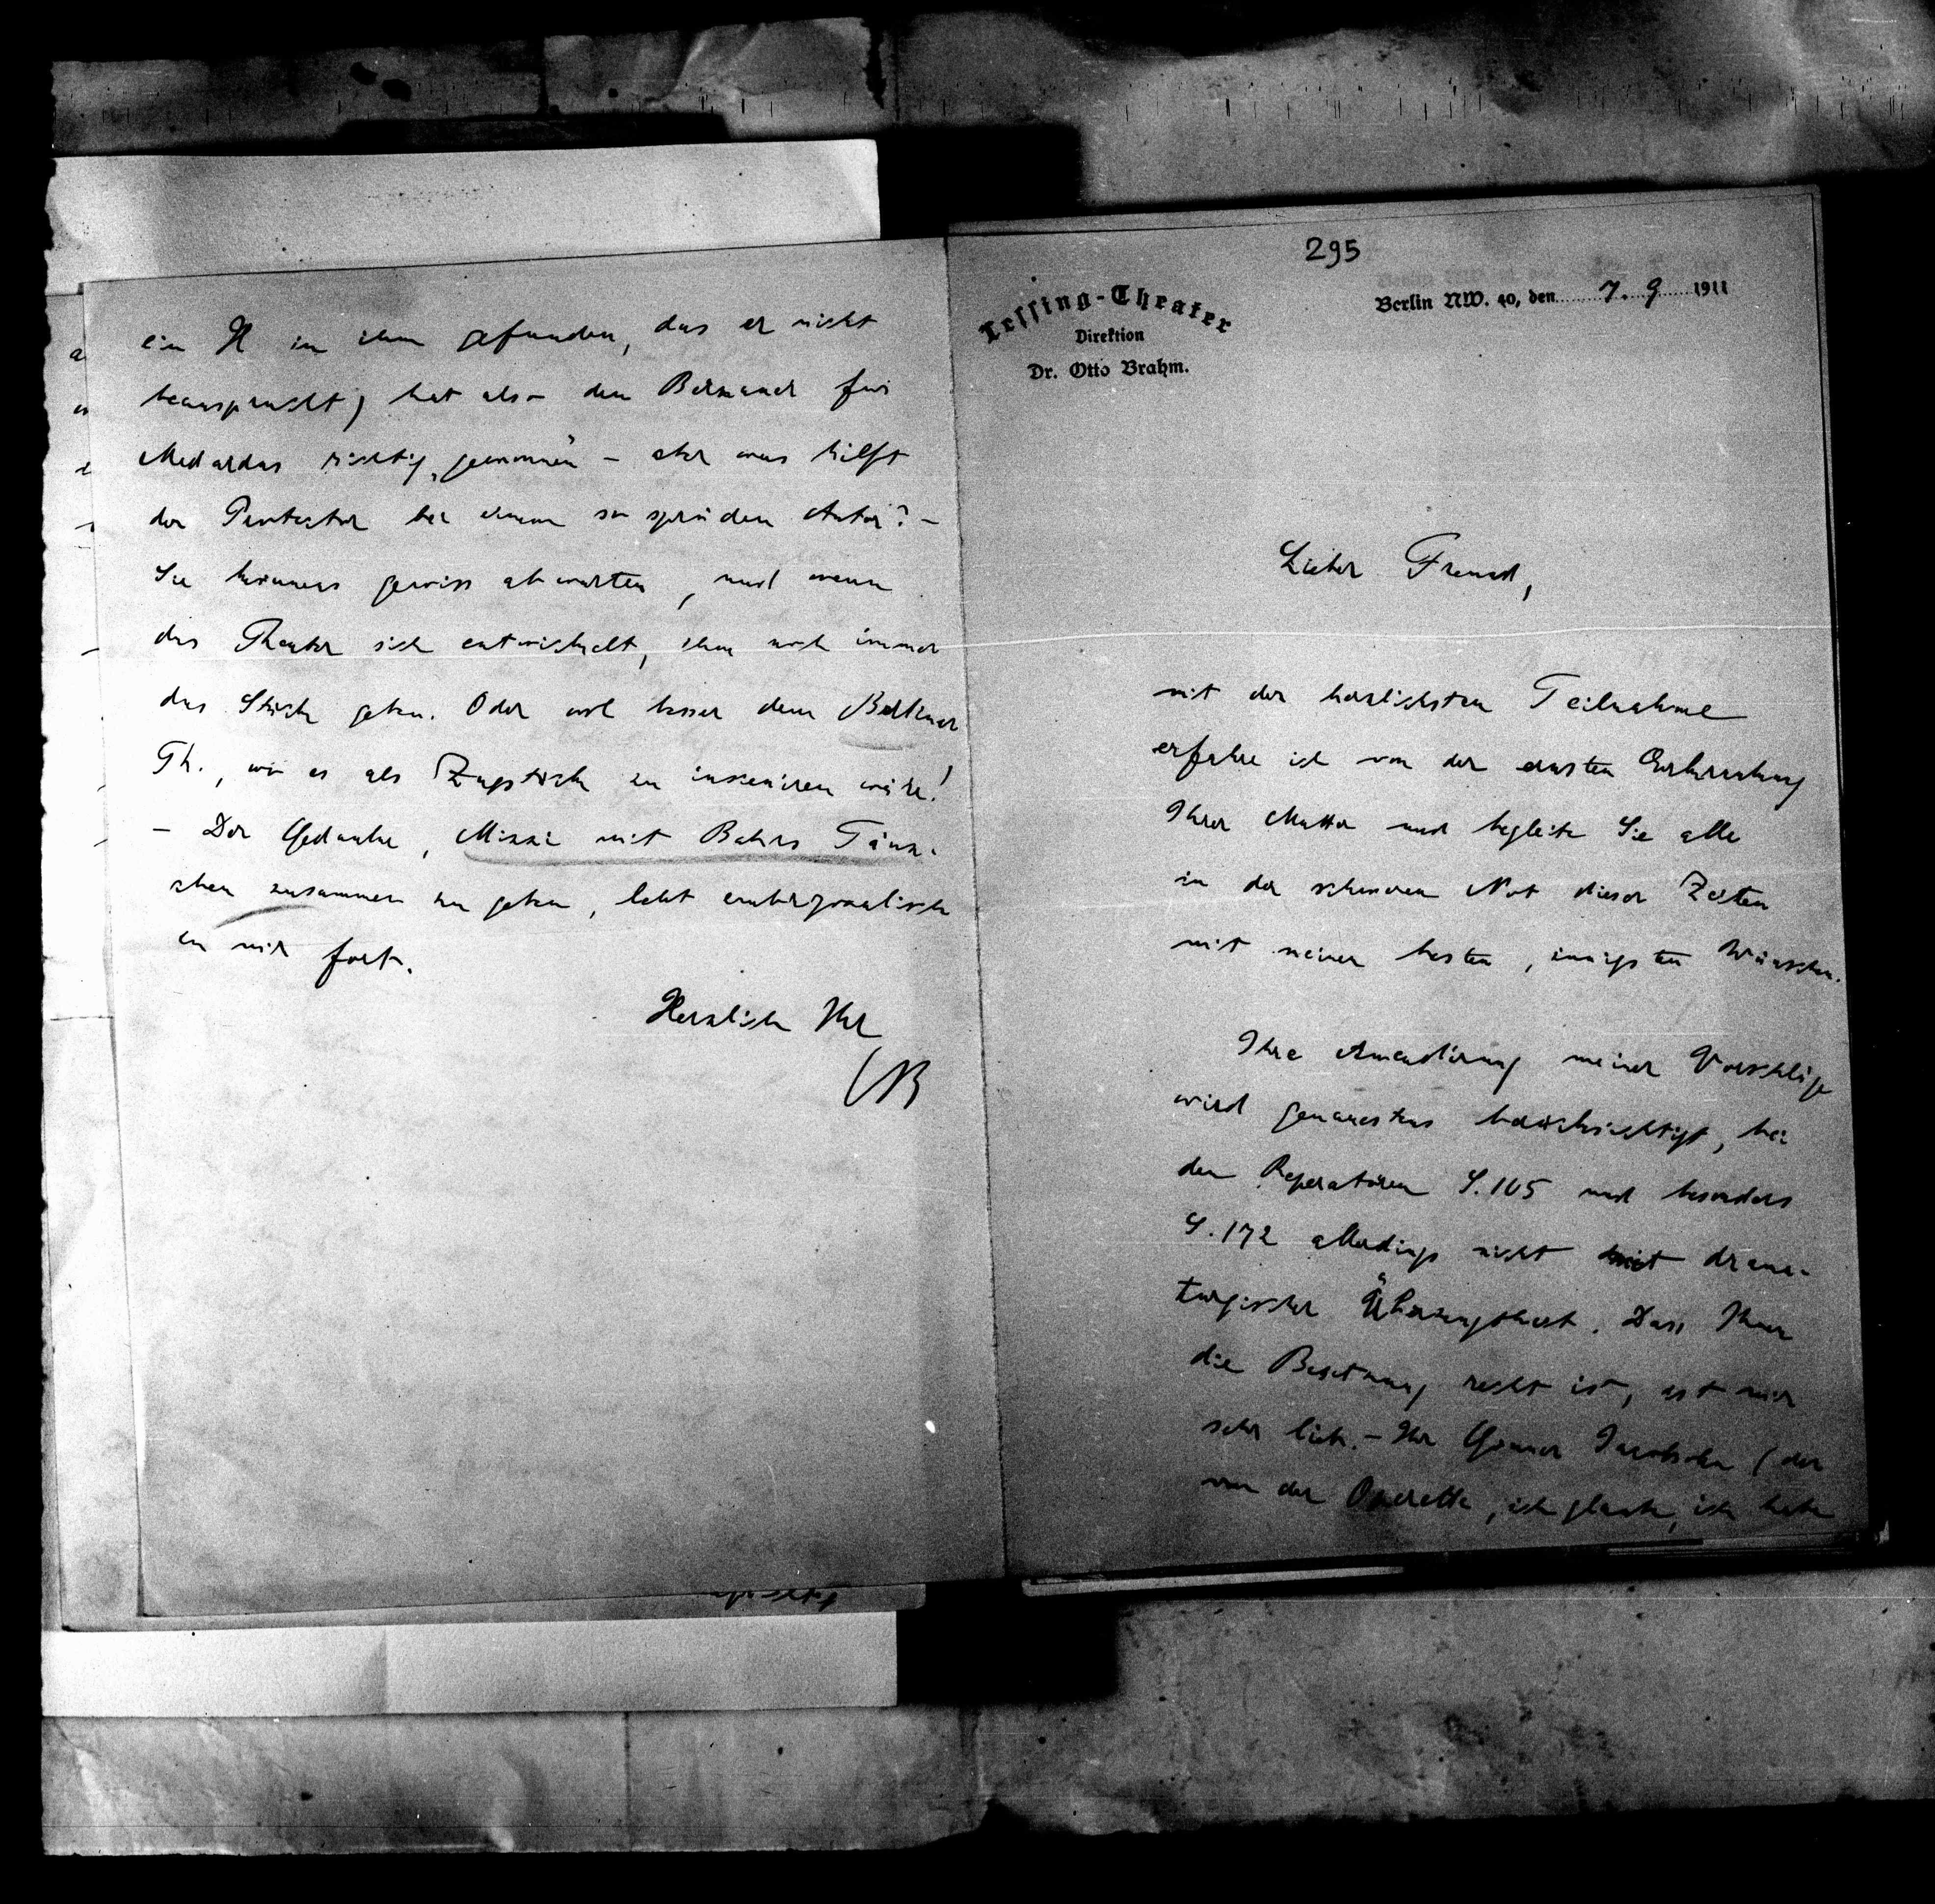 295
Lessing-Theater
Direktion
Dr. Otto Brahm.
Berlin NW. 40, den 7. 9 1911
Lieber Freund,
mit der herzlichsten Teilnahme
erfahre ich von der ernsten Erkrankung
Ihrer Mutter und begleite Sie alle
in der schweren Not dieser Zeiten
mit meinen besten, innigsten Wünschen.
Ihre Amendirung meiner Vorschläge
wird genauestens berücksichtigt, bei
den Reperaturen S. 105 und besonders
S. 172 allerdings nicht mit drama-
turgischer Überzeugtheit. Dass Ihnen
die Besetzung recht ist, ist mir
sehr lieb. – Ihr Gönner Jacobsohn (der
von der Operette, ich glaube, ich habe
ein H in ihm gefunden, das er nicht
beansprucht) hat also den Bernauer für
Medardus richtig gewonnen – aber was hilft
der Protektor bei einem so spröden Autor? –
Sie können's gewiss abwarten, und wenn
das Theater sich entwickelt, ihm noch immer
das Stück geben. Oder wol besser dem Berliner
Th., wo es als Zugstück zu inszeniren wäre!
– Der Gedanke, Mizzi mit Bahrs Tänz-
chen zusammen zu geben, lebt embryonalisch
in mir fort.
Herzlich Ihr
OB